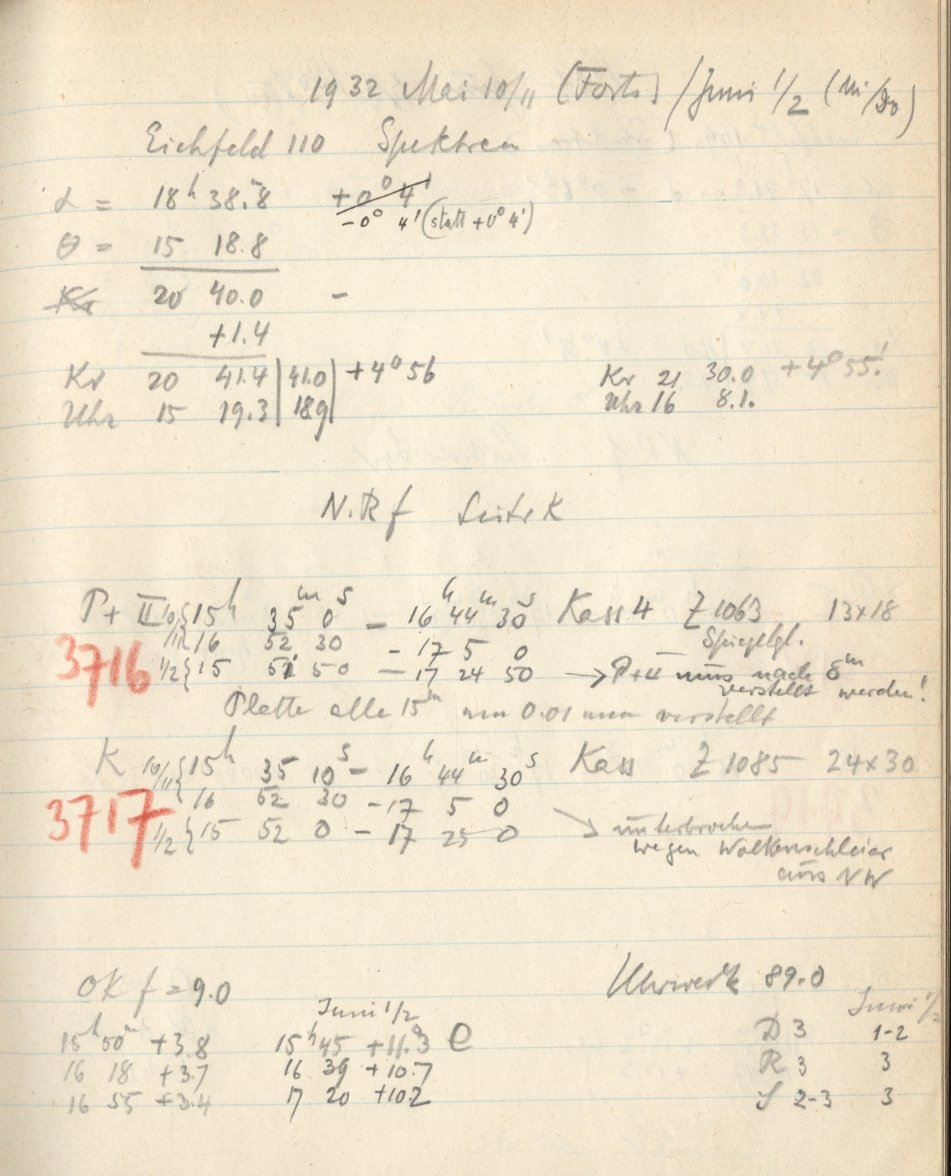 1932 Mai 10/11 (Forts) / Juni 1/2 (Mi/Do)
Eichfeld 110 Spektren
α = 18h 38.m8 +0° 4'
-0° 4' (statt +0° 4')
θ = 15 18.8
Kr 20 40.0 -
+1.4
Kr 20 41.4 | 41.0 | +4° 56 Kr 21 30.0 +4° 55.'
Uhr 15 19.3 | 18 9 | Uhr 16 8.1.
N.R f Seite K
P + II 10/11 { 15h 35m 0s - 16h 44m 30s Kass 4 Z 1063 13x18
16 52 30 - 17 5 0 Spiegelgl.
3716 1/2 { 15 51 50 - 17 24 50 → P+II muss nach δm
verstellt werden!
Platte alle 15m um 0.01 mm verstellt
K 10/11 { 15h 35 10s - 16h 44m 30s Kass Z 1085 24x30
16 52 30 - 17 5 0
3717 1/2 { 15 52 0 - 17 25 0 → unterbrochen
wegen Wolkenschleier
aus NW
OK f = 9.0 Uhrwerk 89.0
Juni 1/2 Juni 1/2
15h 50m +3.8 15h 45 +11.3 e D 3 1-2
16 18 +3.7 16 39 +10.7 R 3 3
16 55 +3.4 17 20 +10.2 S 2-3 3